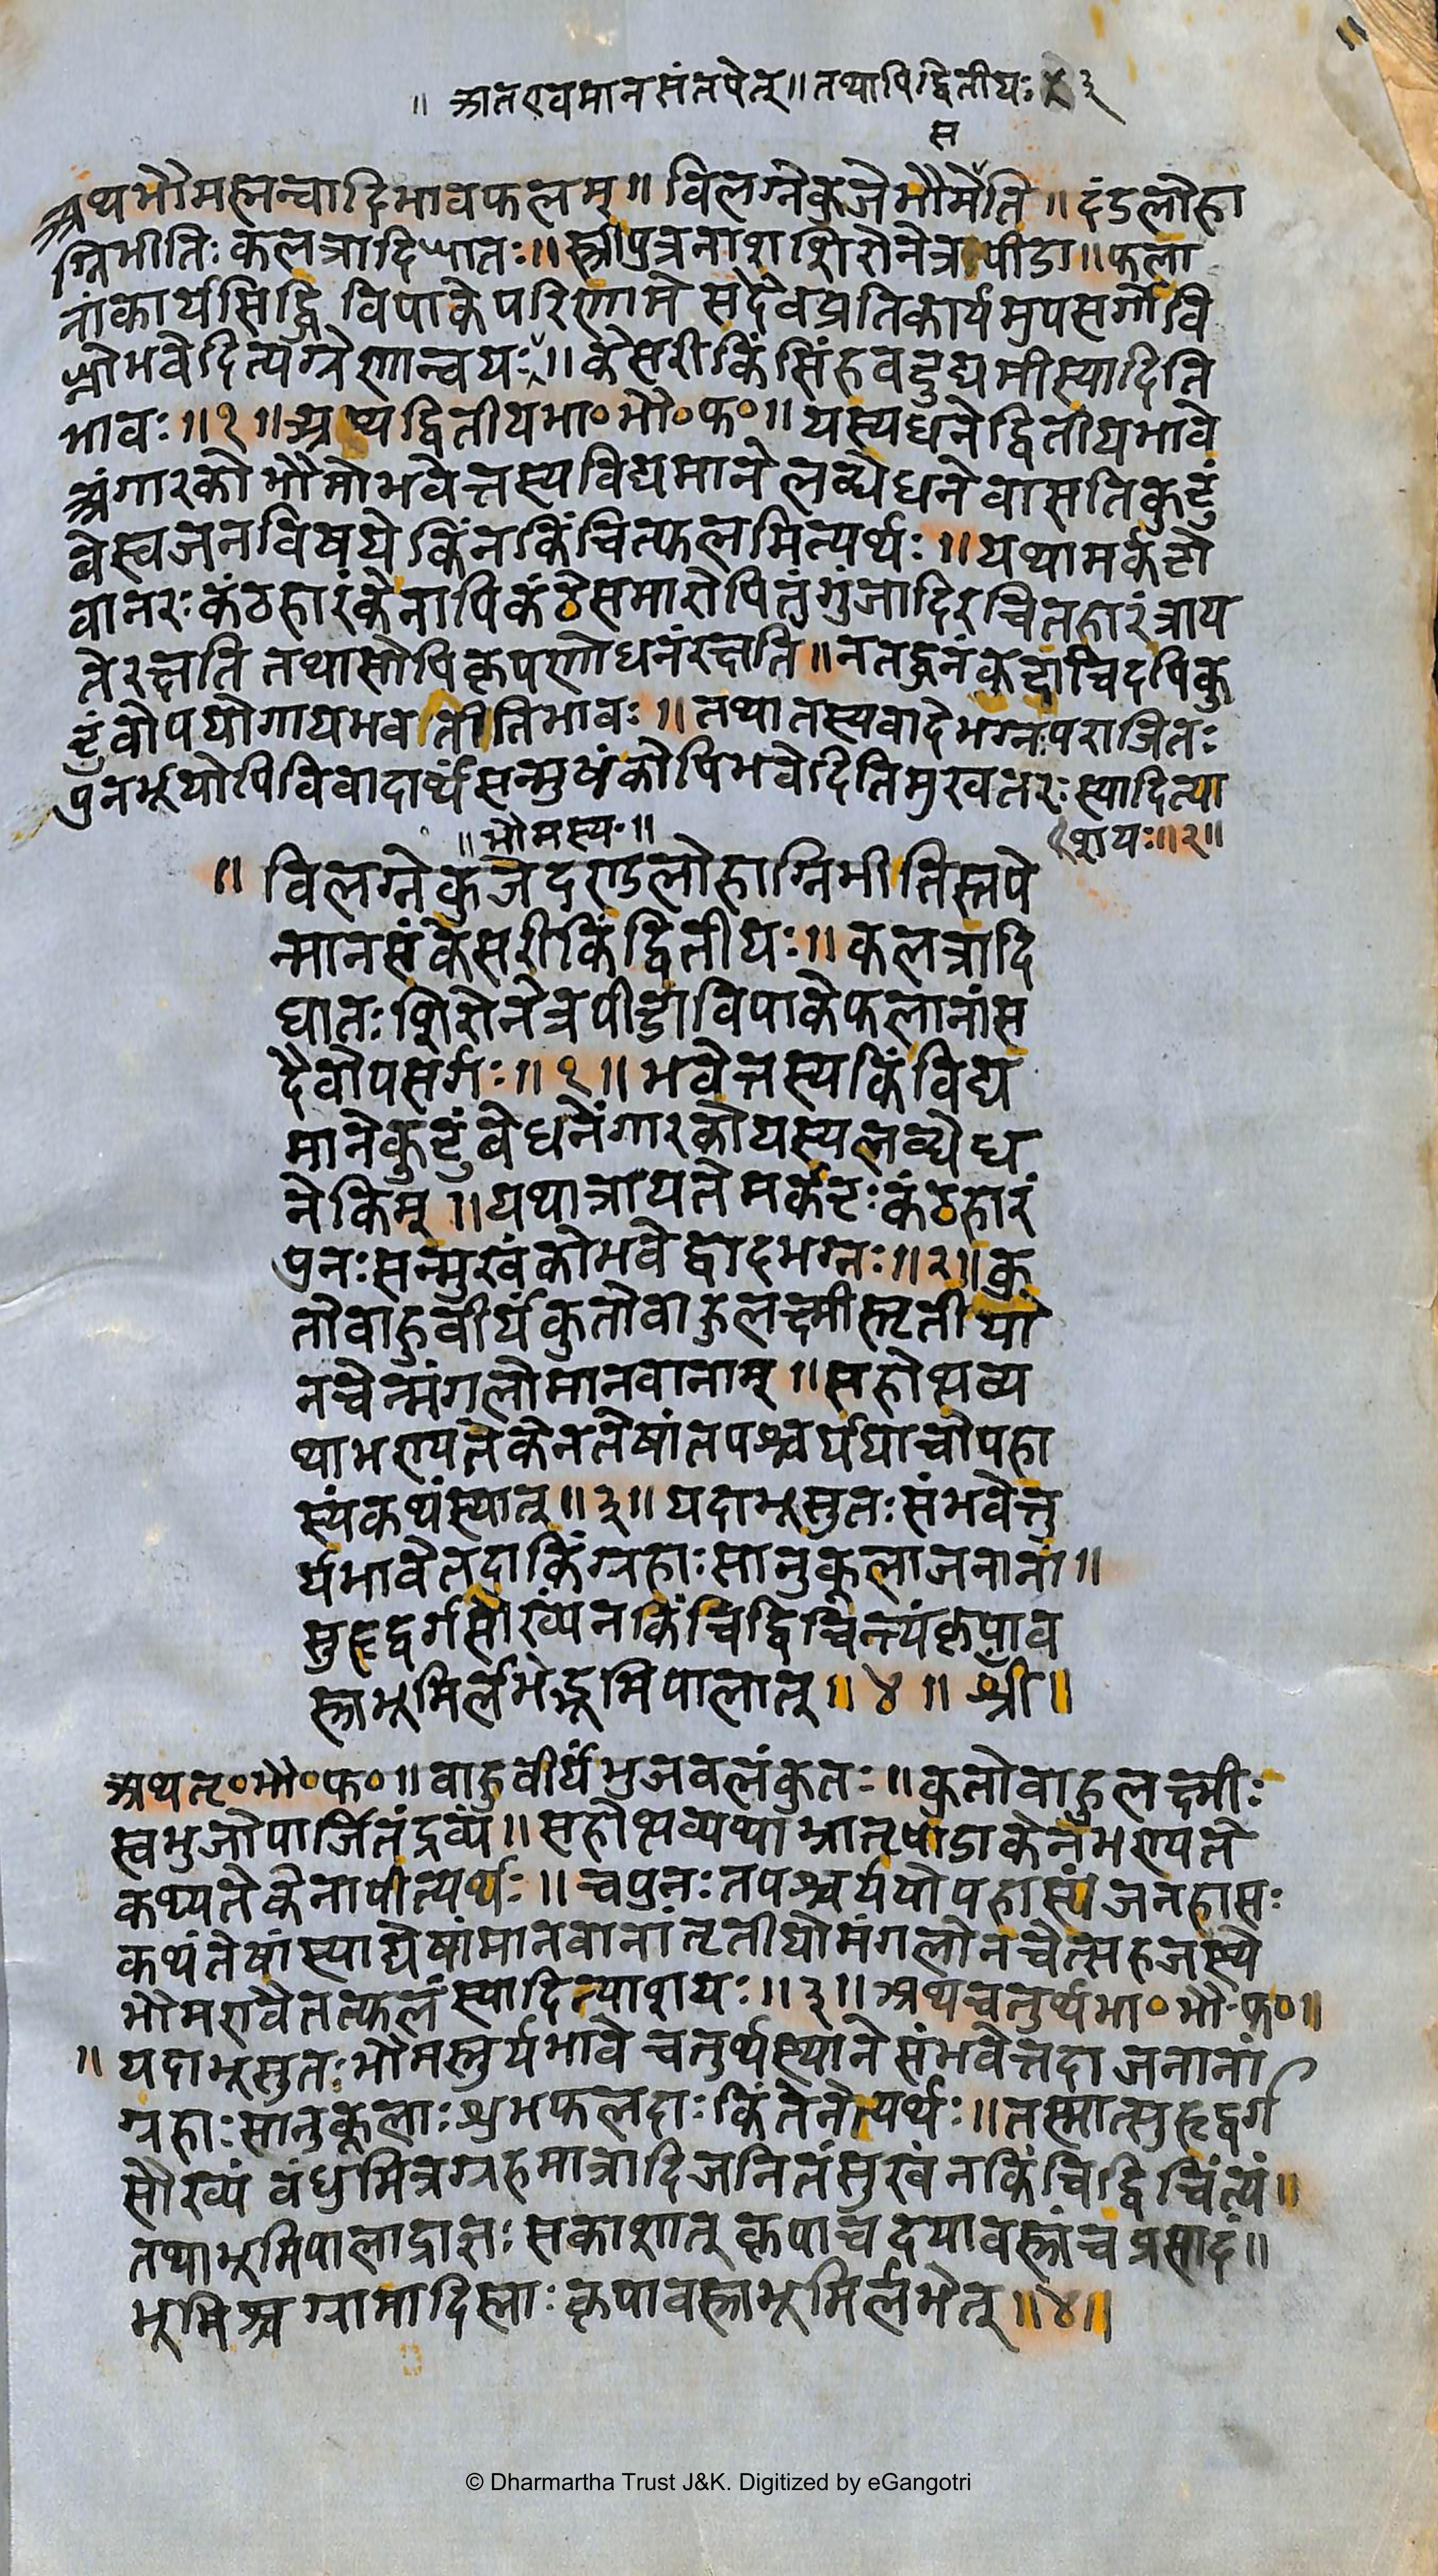 ॥ अतएवमानसंतपेत्॥ तथापिद्वितीयः ३
स
अथभौमस्तन्वादिभावफलम्॥ विलग्नेकुजेभौमेति॥ दंडलोहा
ग्निभीतिः कलत्रादिघातः॥ स्त्रीपुत्रनाश शिरोनेत्र पीडा॥ फला
नांकार्यसिद्धि विपाकेपरिणामे सदैवप्रतिकार्यमुपसर्गोवि
घ्नोभवेदित्यग्रेणान्वयः॥ केसरीकिं सिंहवदुद्यमीस्यादिति
भावः॥१॥ अथद्वितीयभा॰भौ॰फ॰॥ यस्यधनेद्वितीयभावे
अंगारकोभौमोभवेत्तस्यविद्यमाने लब्धेधनेवासतिकुटुं
बेस्वजनविषयेकिंनकिंचित्फलमित्यर्थः॥ यथामर्कटो
वानरः कंठहारंकेनापिकंठेसमारोपितंगुंजादिरचितहारंत्राय
तेरक्षति तथासोपिकृपणोधनंरक्षति॥ नतद्धनंकदाचिदपिकु
टुंबोपयोगायभवतीतिभावः॥ तथातस्यवादेभग्नःपराजितः
पुनर्भूयोपिविवादार्थंसन्मुखंकोपिभवेदितिमुखतरःस्यादित्या
शयः॥२॥
॥ भौमस्य॰॥
॥ विलग्नेकुजेदण्डलोहाग्निभीतिस्तपे
न्मानसंकेसरीकिंद्वितीयः॥ कलत्रादि
घातः शिरोनेत्रपीडाविपाकेफलानांस
दैवोपसर्गः॥१॥ भवेत्तस्यकिंविद्य
मानेकुटुंबेधनेंगारकोयस्यलब्धेध
नेकिम्॥ यथात्रायतेमर्कटःकंठहारं
पुनःसन्मुखंकोभवेद्वादभग्नः॥२॥ कु
तोबाहुवीर्यंकुतोबाहुलक्ष्मीस्तृतीयो
नचेन्मंगलोमानवानाम्॥ सहोत्थव्य
थाभण्यतेकेनतेषांतपश्चर्ययाचोपहा
स्यंकथंस्यात्॥३॥ यदाभूसुतःसंभवेत्तु
र्यभावेतदाकिंग्रहाःसानुकूलाजनानां॥
सुहृद्वर्गसौख्यंनकिंचिद्विचिन्त्यंकृपाव
स्त्रभूमिर्लभेद्भूमिपालात्॥४॥ श्री॥
अथतृ॰भौ॰फ॰॥ बाहुवीर्यंभुजबलंकुतः॥ कुतोबाहुलक्ष्मीः
स्वभुजोपार्जितंद्रव्यं॥ सहोत्थव्यथाभ्रातृपीडाकेनभण्यते
कथ्यतेकेनापीत्यर्थः॥ चपुनःतपश्चर्ययोपहास्यंजनहासः
कथंतेषांस्याद्येषांमानवानांतृतीयोमंगलोनचेत्सहजस्थे
भौमएवैतत्फलंस्यादित्याशयः॥३॥ अथचतुर्थभा॰भौ॰फ॰॥
॥ यदाभूसुतःभौमस्तुर्यभावे चतुर्थस्थाने संभवेत्तदाजनानां
ग्रहाःसानुकूलाःशुभफलदाःकिंतेनेत्यर्थः॥ तस्मात्सुहृद्वर्ग
सौख्यं बंधुमित्रग्रहमात्रादिजनितंसुखंनकिंचिद्विचिंत्यं॥
तथाभूमिपालाद्राज्ञः सकाशात् कृपाच दयावस्त्रंच प्रसादं॥
भूमिश्च ग्रामादिस्ताःकृपावस्त्रभूमिर्लभेत्॥४॥
© Dharmartha Trust J&K. Digitized by eGangotri